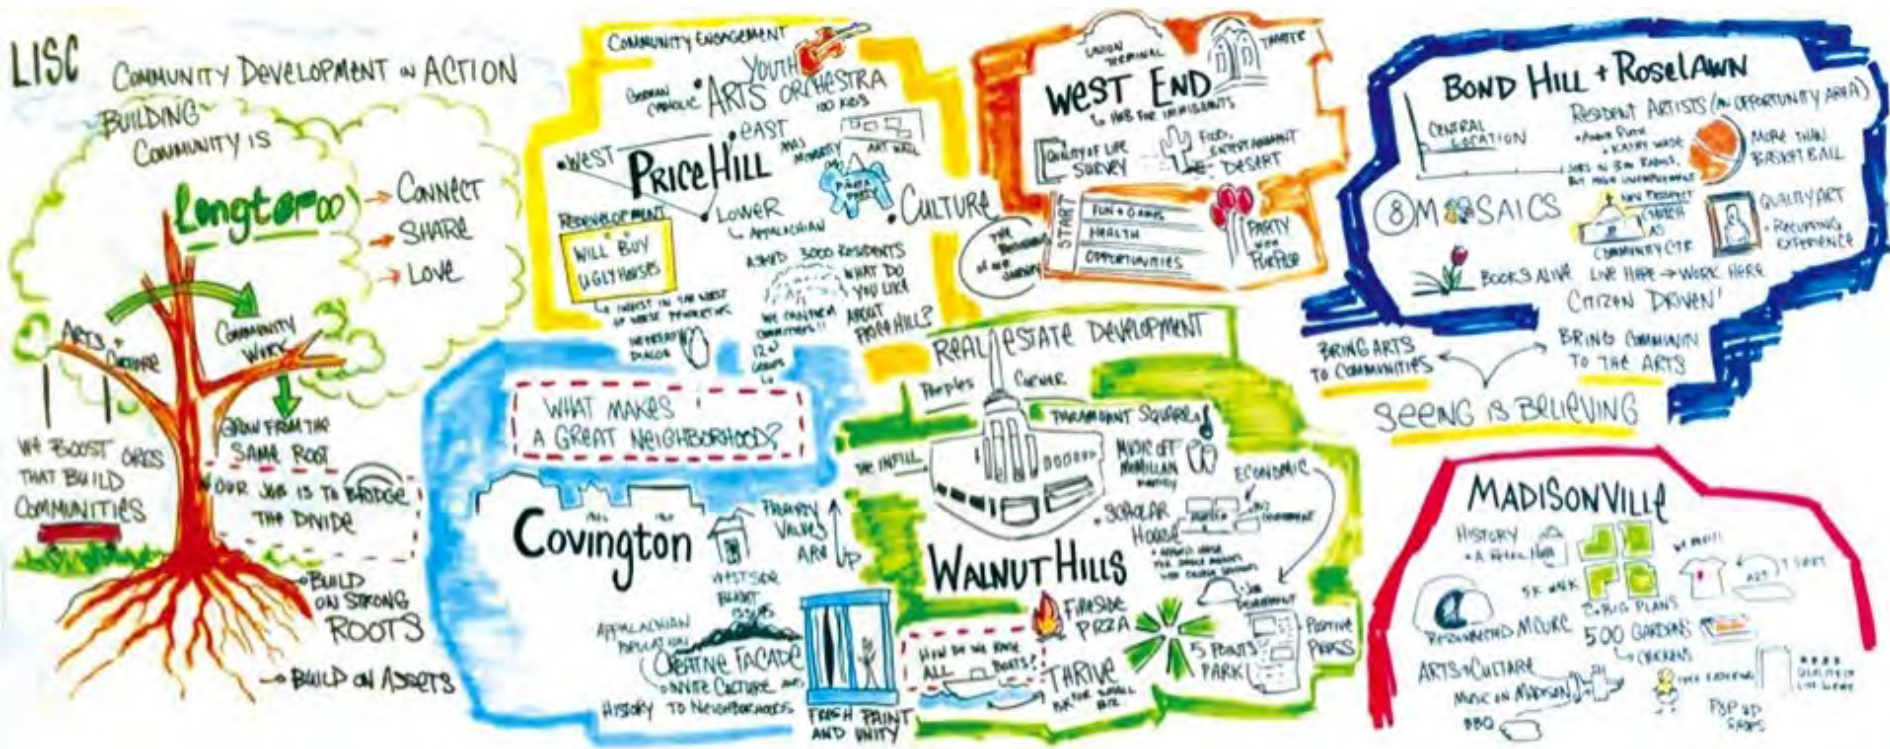 LISC
COMMUNITY DEVELOPMENT IN ACTION
BUILDING
COMMUNITY IS
Longterm
CONNECT
SHARE
LOVE
ARTS +
CULTURE
COMMUNITY
WORK
WE BOOST ORGS
THAT BUILD
COMMUNITIES
GROW FROM THE
SAME ROOT
OUR JOB IS TO BRIDGE
THE DIVIDE
BUILD
ON STRONG
ROOTS
BUILD ON ASSETS
COMMUNITY ENGAGEMENT
YOUTH
ARTS ORCHESTRA
100 KIDS
GERMAN
CATHOLIC
EAST
WEST
PRICE HILL
ART WALL
PIÑATA
PARTY
LOWER
APPALACHIAN
CULTURE
REDEVELOPMENT
WILL BUY
UGLY HOUSES
INVEST IN THE WORST
OF WORSE PROPERTIES
ASKED 3000 RESIDENTS
WHAT DO
YOU LIKE
ABOUT
PRICE HILL?
UNION
TERMINAL
THEATER
WEST END
HUB FOR IMMIGRANTS
QUALITY OF LIFE
SURVEY
FOOD,
ENTERTAINMENT
DESERT
START
FUN + GAMES
HEALTH
OPPORTUNITIES
PARTY
WITH
PURPOSE
BOND HILL + ROSELAWN
CENTRAL
LOCATION
RESIDENT ARTISTS (AN OPPORTUNITY AREA)
KATHY WADE
MORE THAN
BASKETBALL
8 MOSAICS
CHURCH
AS
COMMUNITY CTR
QUALITY ART
RECURRING
EXPERIENCE
BOOKS ALIVE
LIVE HERE → WORK HERE
CITIZEN DRIVEN!
BRING ARTS
TO COMMUNITIES
BRING COMMUNITY
TO THE ARTS
SEEING IS BELIEVING
WHAT MAKES
A GREAT NEIGHBORHOOD?
COVINGTON
PROPERTY
VALUES
ARE
UP
WESTSIDE
BLIGHT
ISSUES
APPALACHIAN
POPULATION
CREATIVE FACADE
INVITE CULTURE AND
HISTORY TO NEIGHBORHOODS
FRESH PAINT
AND UNITY
REAL ESTATE DEVELOPMENT
PEEPLES CORNER
PARAMOUNT SQUARE
THE INFILL
MUSIC OFF
MCMILLAN
ECONOMIC
SCHOLAR
HOUSE
WALNUT HILLS
FIRESIDE
PIZZA
HOW DO WE RAISE
ALL BOATS?
THRIVE
5 POINTS
PARK
POSITIVE
PRESS
MADISONVILLE
HISTORY
5K WALK
T SHIRT
ART
2 BIG PLANS
500 GARDENS
CHICKENS
ARTS + CULTURE
MUSIC ON MADISON
BBQ
POP UP
SHOPS